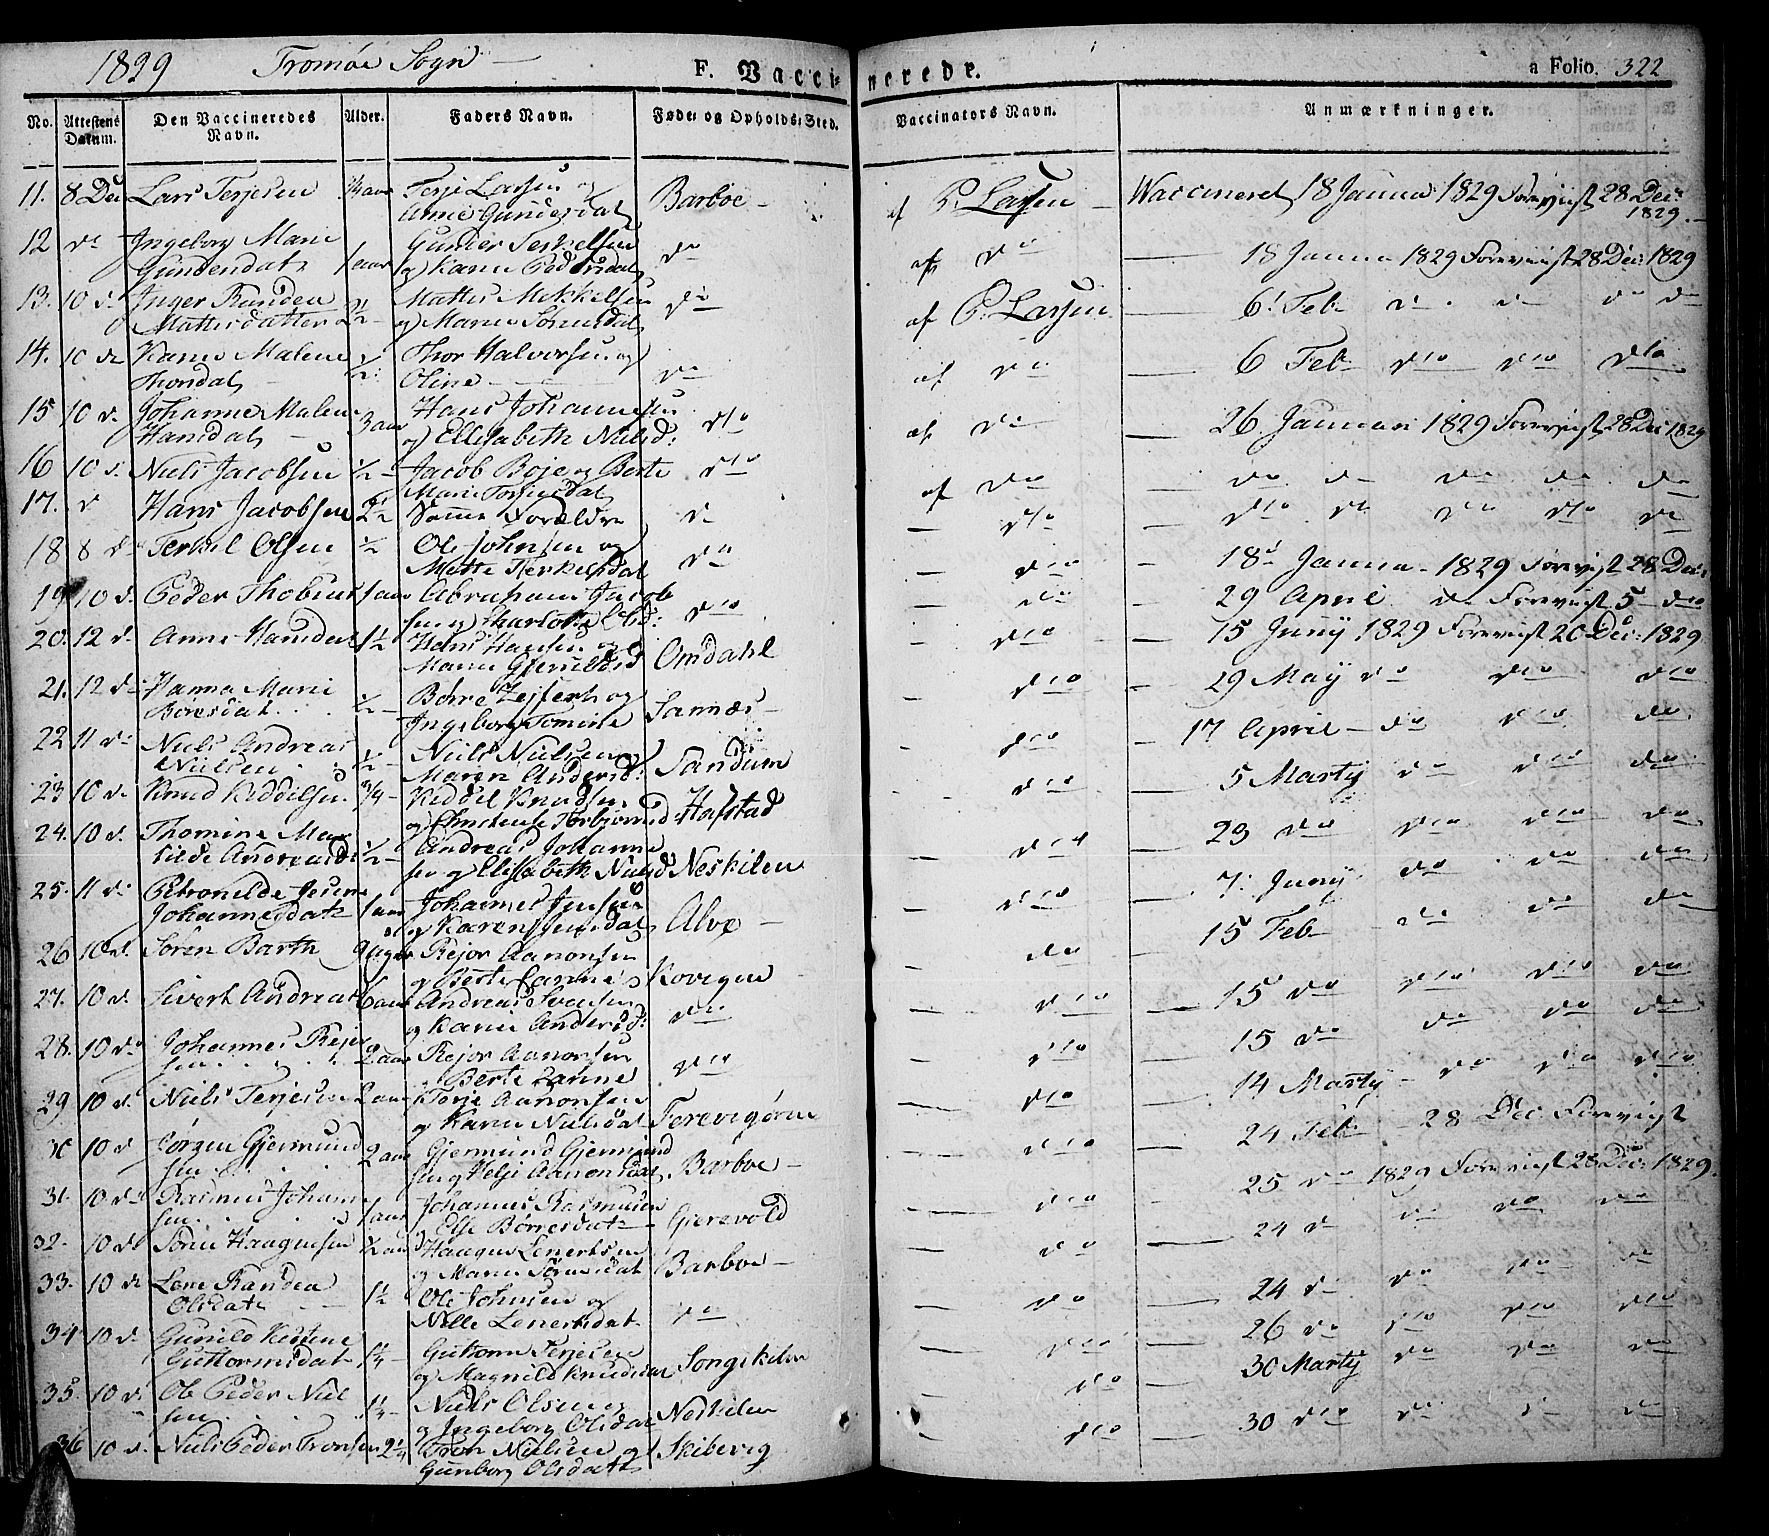 1829 Tromøe Sogn — F. Vaccineredr. a Folio. 322
No. Attestens Datum. Den Vaccineredes Navn. Alder. Faders Navn. Føde- og Opholds-Sted. Vaccinators Navn. Anmærkninger.
11. 8 Dec Lars Terjesen 1/4 aar Terje Larsen og Barboe - af P. Larsen Waccineret 18 Janua: 1829 Forevist 28 Dec:
Anne Gundersdat 1829.
12 do Ingeborg Marie 1 aar Gunder Terkelsen do af do 18 Janua 1829 Forevist 28 Dec: 1829
Gundersdat og Karen Pedersdat
13. 10 do Inger Randea 2½ Mathis Mikkelsen do af P. Larsen 6 Feb do do do do
Mathisdatter og Maren Sørensdat
14. 10 do Karen Malene ½ Thor Halvorsen og do af do 6 Feb do do do
Thorsdat Oline
15 10 d. Johanne Malene 3 aar Hans Johannesen do af do 26. Januari 1829 Forevist 28 Dec: 1829
Hansdat og Ellisabeth Nielsd:
16 10 d. Niels Jacobsen ½ Jacob Boje og Berte do af do do do do do do
Marie Terjesdat
17. d Hans Jacobsen 2½ Samme Forældre do do do do do do do
18 8 do Terkel Olsen ½ Ole Johnsen og do do 18 Janua 1829 Forevist 28 Dec:
Mette Terkelsdat
19 10 d. Peder Thobias 1 aar Abraham Jacob do do 29 April do Forevist 5 do
sen og Charlotte Olsd:
20. 12 d. Anne Hansdat 1½ Hans Hansen og Omdahl do 15 Juny 1829 Forevist 20 Dec: 1829
21. 12 do Hanna Marie ½ Børre Zeifert og Sannæs do 29 May do do do
Boresdat Ingeborg Tomine
22 11 do Niels Andreas ½ Niels Nielsen og Sandum do 17 April do do do
Nielsen Maren Andersd:
23 10 d. Knud Kiddelsen 3/4 Kiddel Knudsen Hafstad do 5 Marty do do do
24. 10 d. Thomine Ma ½ Andreas Johanne Neskilen do 23 do do do do
tilde Andreasd sen og Elisabeth Nielsd
25. 11 d. Petronilde Jesine 1 aar Johannes Jensen Alve do 7. Juny do do do
Johannesdat og Karen Jensdat
26 10 d. Søren Barth 9 uger Rejor Aanonsen Kovigen do 15 Feb do do do
27. 10 d. Sivert Andreas 6 aar Andreas do do 15 do do do do
og Karen Andersd:
28. 10 do Johannes Rejor 2 aar Rejor Aanonsen do do 15 do do do do
sen
29 10 d. Niels Terjesen 2 aar Terje Aanonsen do 14 Marty do do do
og Karen Nielsdat
30 10 d. Jørgen Gjermund 2 aar Gjermund Gjermund Barboe do 24 Feb 28 Dec Forevist
sen sen og Aanonsdat
31. 10 do Rasmus Johann 1 aar Johannes Rasmusen Gierevold do 25 do 1829 Forevist 28 Dec: 1829.
sen og Else Børresdat
32. 10 do Haagensen ½ aar Haagen Lenertsen Barboe do 24 d do do do
og Maren Sørensdat
33. 10 do Lene Randea 1½ Ole Johnsen og do do 24 d do do do
Olsdat Nille Lenertsdat
34 10 d. Gunild Kistine 1¼ Guttorm Terjesen Songekilen do 26 do do do do
Guttormsdat og Magnild Knudsdat
35 10 d. Ole Peder Niel 1¼ Niels Olsen og Neskilen do 30 Marty do do do
sen og Ingeborg Olsdat
36 10 d. Niels Peder Tronsen 2¼ Tron Nielsen og Skibevig do 30 do do do do
Gunborg Olsdat